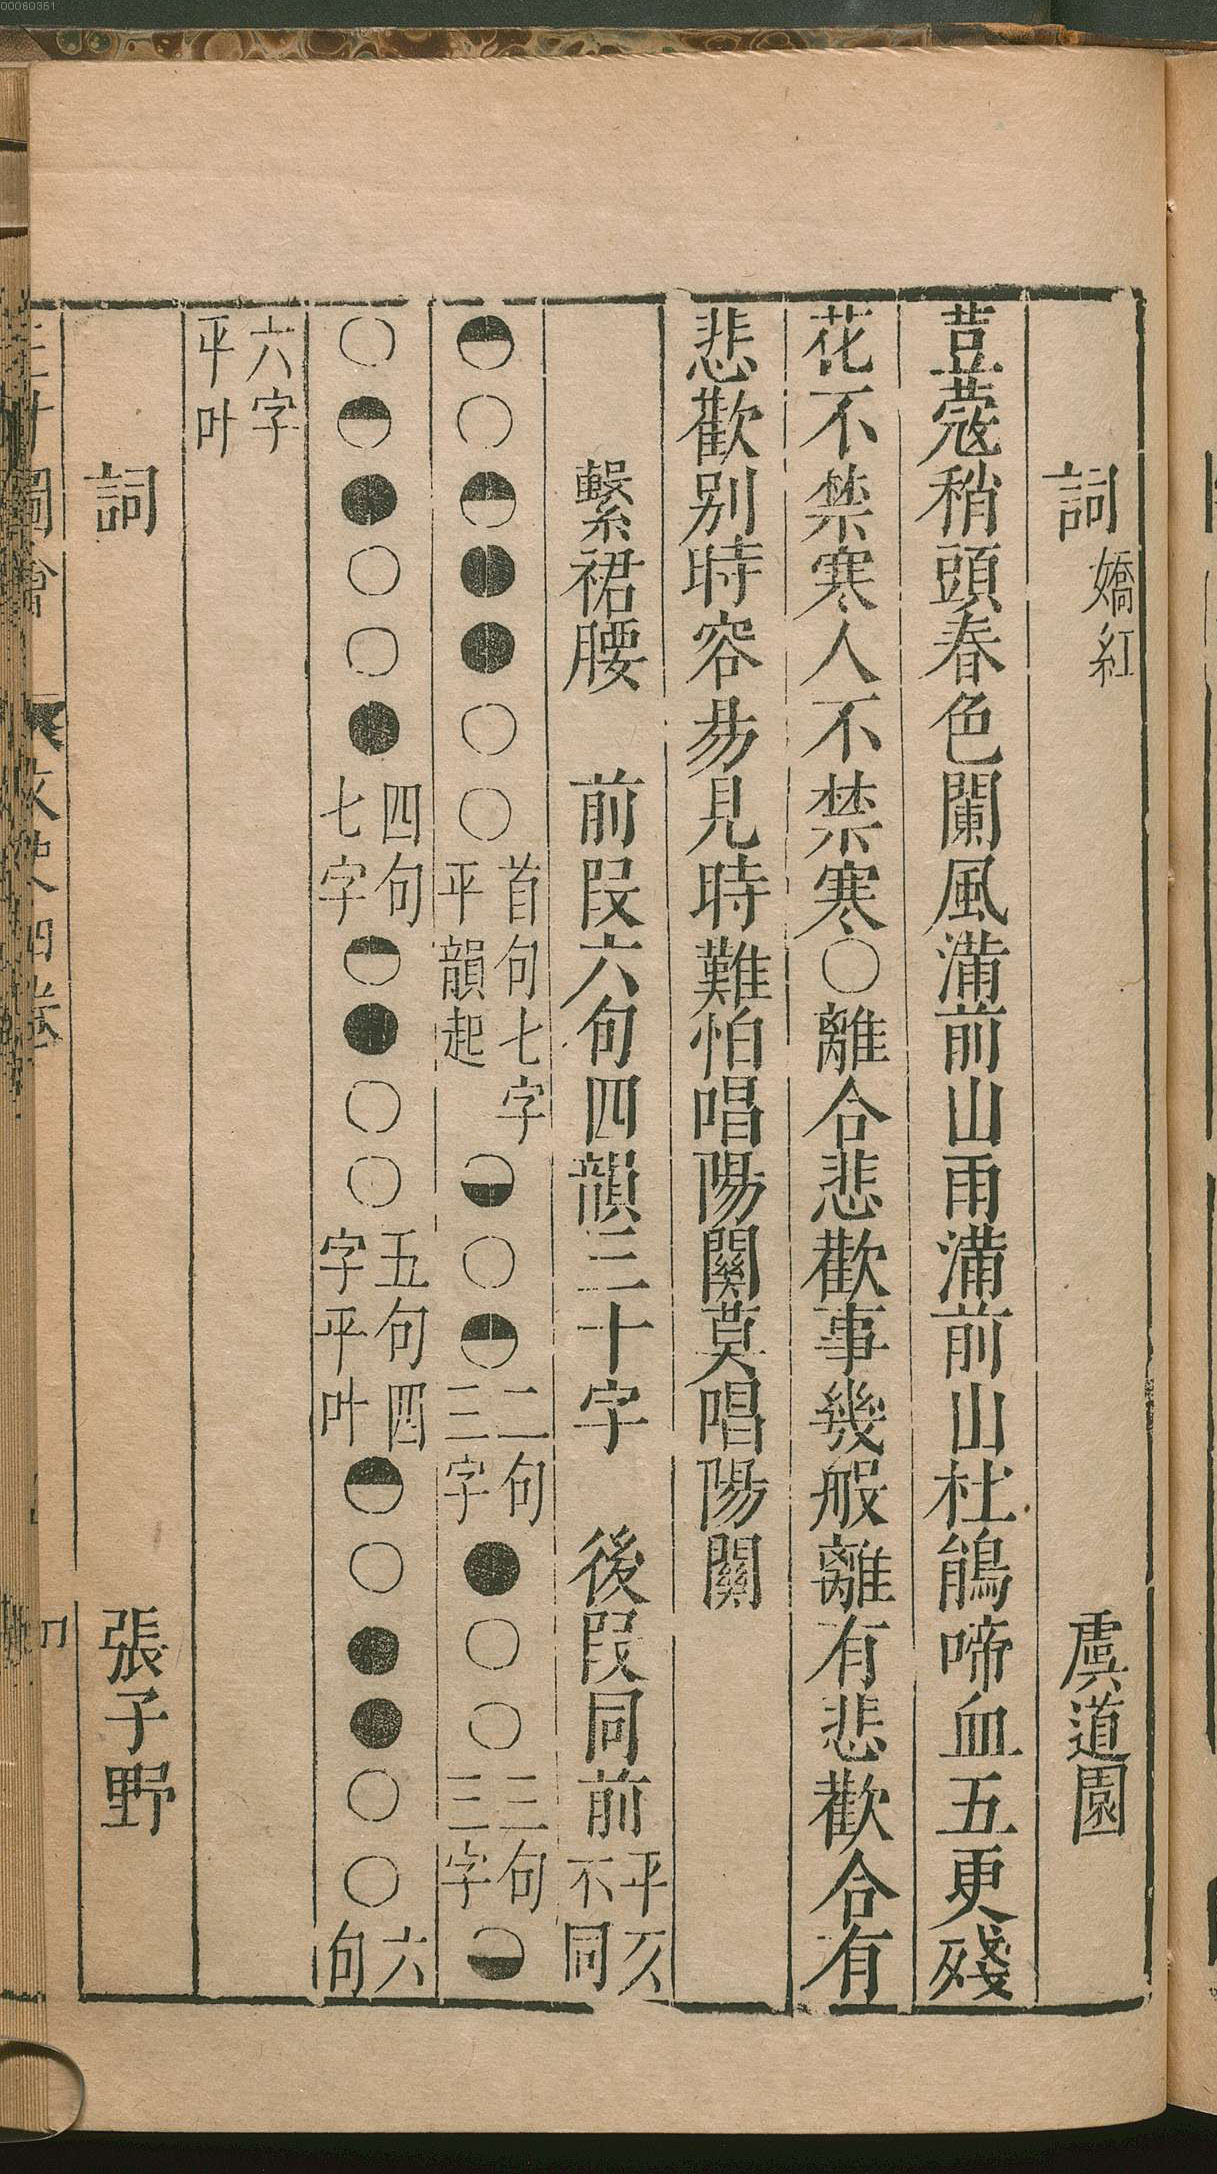 詞 嬌紅 虞道園
荳蔻稍頭春色闌風滿前山雨滿前山杜鵑啼血五更殘
花不禁寒人不禁寒○離合悲歡事幾般離有悲歡合有
悲歡别時容昜見時難怕唱陽關莫唱陽關
繫裙腰 前段六句四韻三十字 後段同前 平仄不同
◓○◓●●○○ 首句七字平韻起 ◒○◓ 二句三字 ●○○ 三句三字 ◒
○◓●○○● 四句七字 ◓●○○ 五句四字平叶 ◓○●●○○ 六句
六字平叶
詞 張子野
三才圖會 文史四卷
00060351